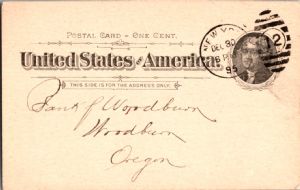 POSTAL CARD – ONE CENT.
United States of America
THIS SIDE IS FOR THE ADDRESS ONLY.
NEW YORK
DEC 30
95
2
Bank of Woodburn
Woodburn
Oregon